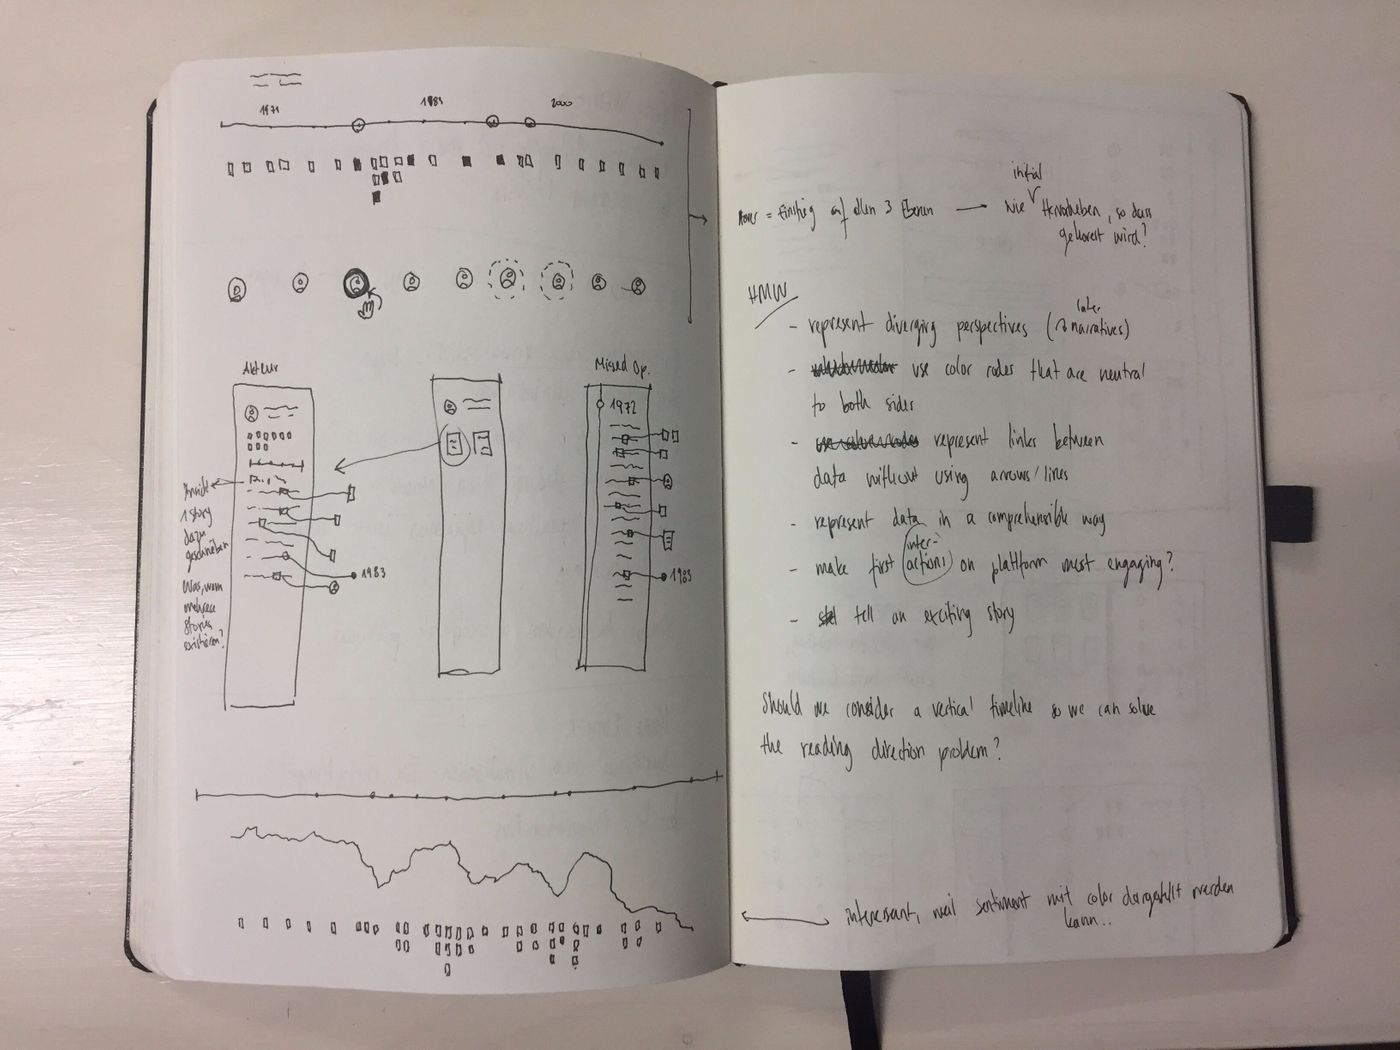 1971 1983 2000
Akteur
Missed Op.
1972
1 Story
dazu
geschrieben
1983
Was, wenn
mehrere
Stories
existieren?
1983
initial
Hover = Einstieg auf allen 3 Ebenen → Wie Hervorheben, so dass
gehovert wird?
HMW
later
- represent diverging perspectives (→ narratives)
- use color codes that are neutral
to both sides
- represent links between
data without using arrows/lines
- represent data in a comprehensible way
- make first inter-
actions on plattform most engaging?
- tell an exciting story
Should we consider a vertical timeline so we can solve
the reading direction problem?
interessant, weil sentiment mit color dargestellt werden
kann..